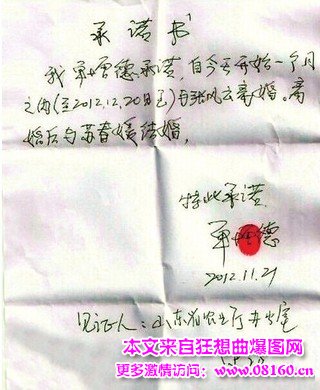 承诺书
我单增德承诺,自今天开始一个月
之内(至2012.12.20日已)与张风云离婚。离
婚后与苏春媛结婚,
特此承诺.
单增德
2012.11.21
见证人:山东省农业厅办公室
本文来自狂想曲爆图网
更多激情访问:www.08160.cn